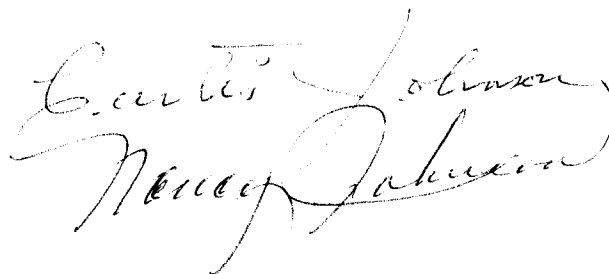 Curtis Johnson
Nancy Johnson